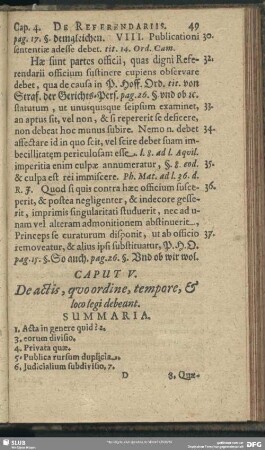 Cap. 4. De Referendariis. 49
pag. 17. §. demgleichen. VIII. Publicationi 30.
sententiæ adesse debet. tit. 14. Ord. Cam.
Hæ sunt partes officii, quas digni Refe- 32.
rendarii officium sustinere cupiens observare
debet, qua de causa in P. Hoff. Ord. tit. von
Straf. der Gerichts-Pers. pag. 26. §. und ob ꝛc.
statutum, ut unusquisque seipsum examinet, 33.
an aptus sit, vel non, & si repererit se desicere,
non debeat hoc munus subire. Nemo n. debet 34.
affectare id in quo scit, vel scire debet suam
imbecillitatem periculosam esse. l. 8. ad l. Aquil.
imperitia enim culpæ annumeratur, §. 8. eod. 35.
& culpa est rei immiscere. Ph. Mat. ad l. 36. d.
R. J. Quod si quis contra hæc officium susce- 36.
perit, & postea negligenter, & indecore gesse-
rit, inprimis singularitati studuerit, nec ad u-
nam vel alteram admonitionem abstinuerit,
Princeps se curaturum disponit, ut ab officio 37.
removeatur, & alius ipsi substituatur, P. H. O.
pag. 15. §. So auch. pag. 26. §. Und ob wir wol.
CAPUT V.
De actis, quo ordine, tempore, &
loco legi debeant.
SUMMARIA.
1. Acta in genere quid? 2.
3. eorum divisio.
4. Privata quæ.
5. Publica rursum duplicia.
6. Judicialium subdivisio, 7.
D 8. Quæ-
SLUB
DFG